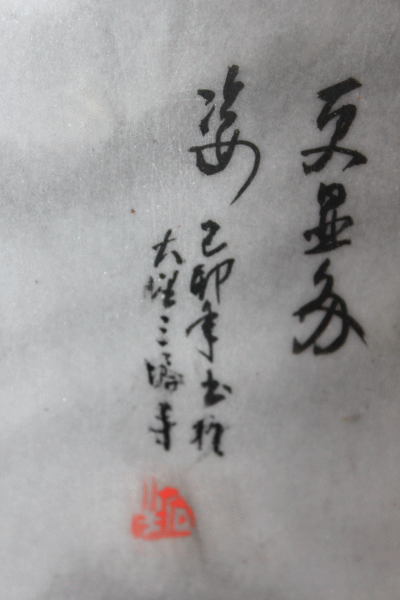 更显多
姿
己卯年书于
大理三塔寺